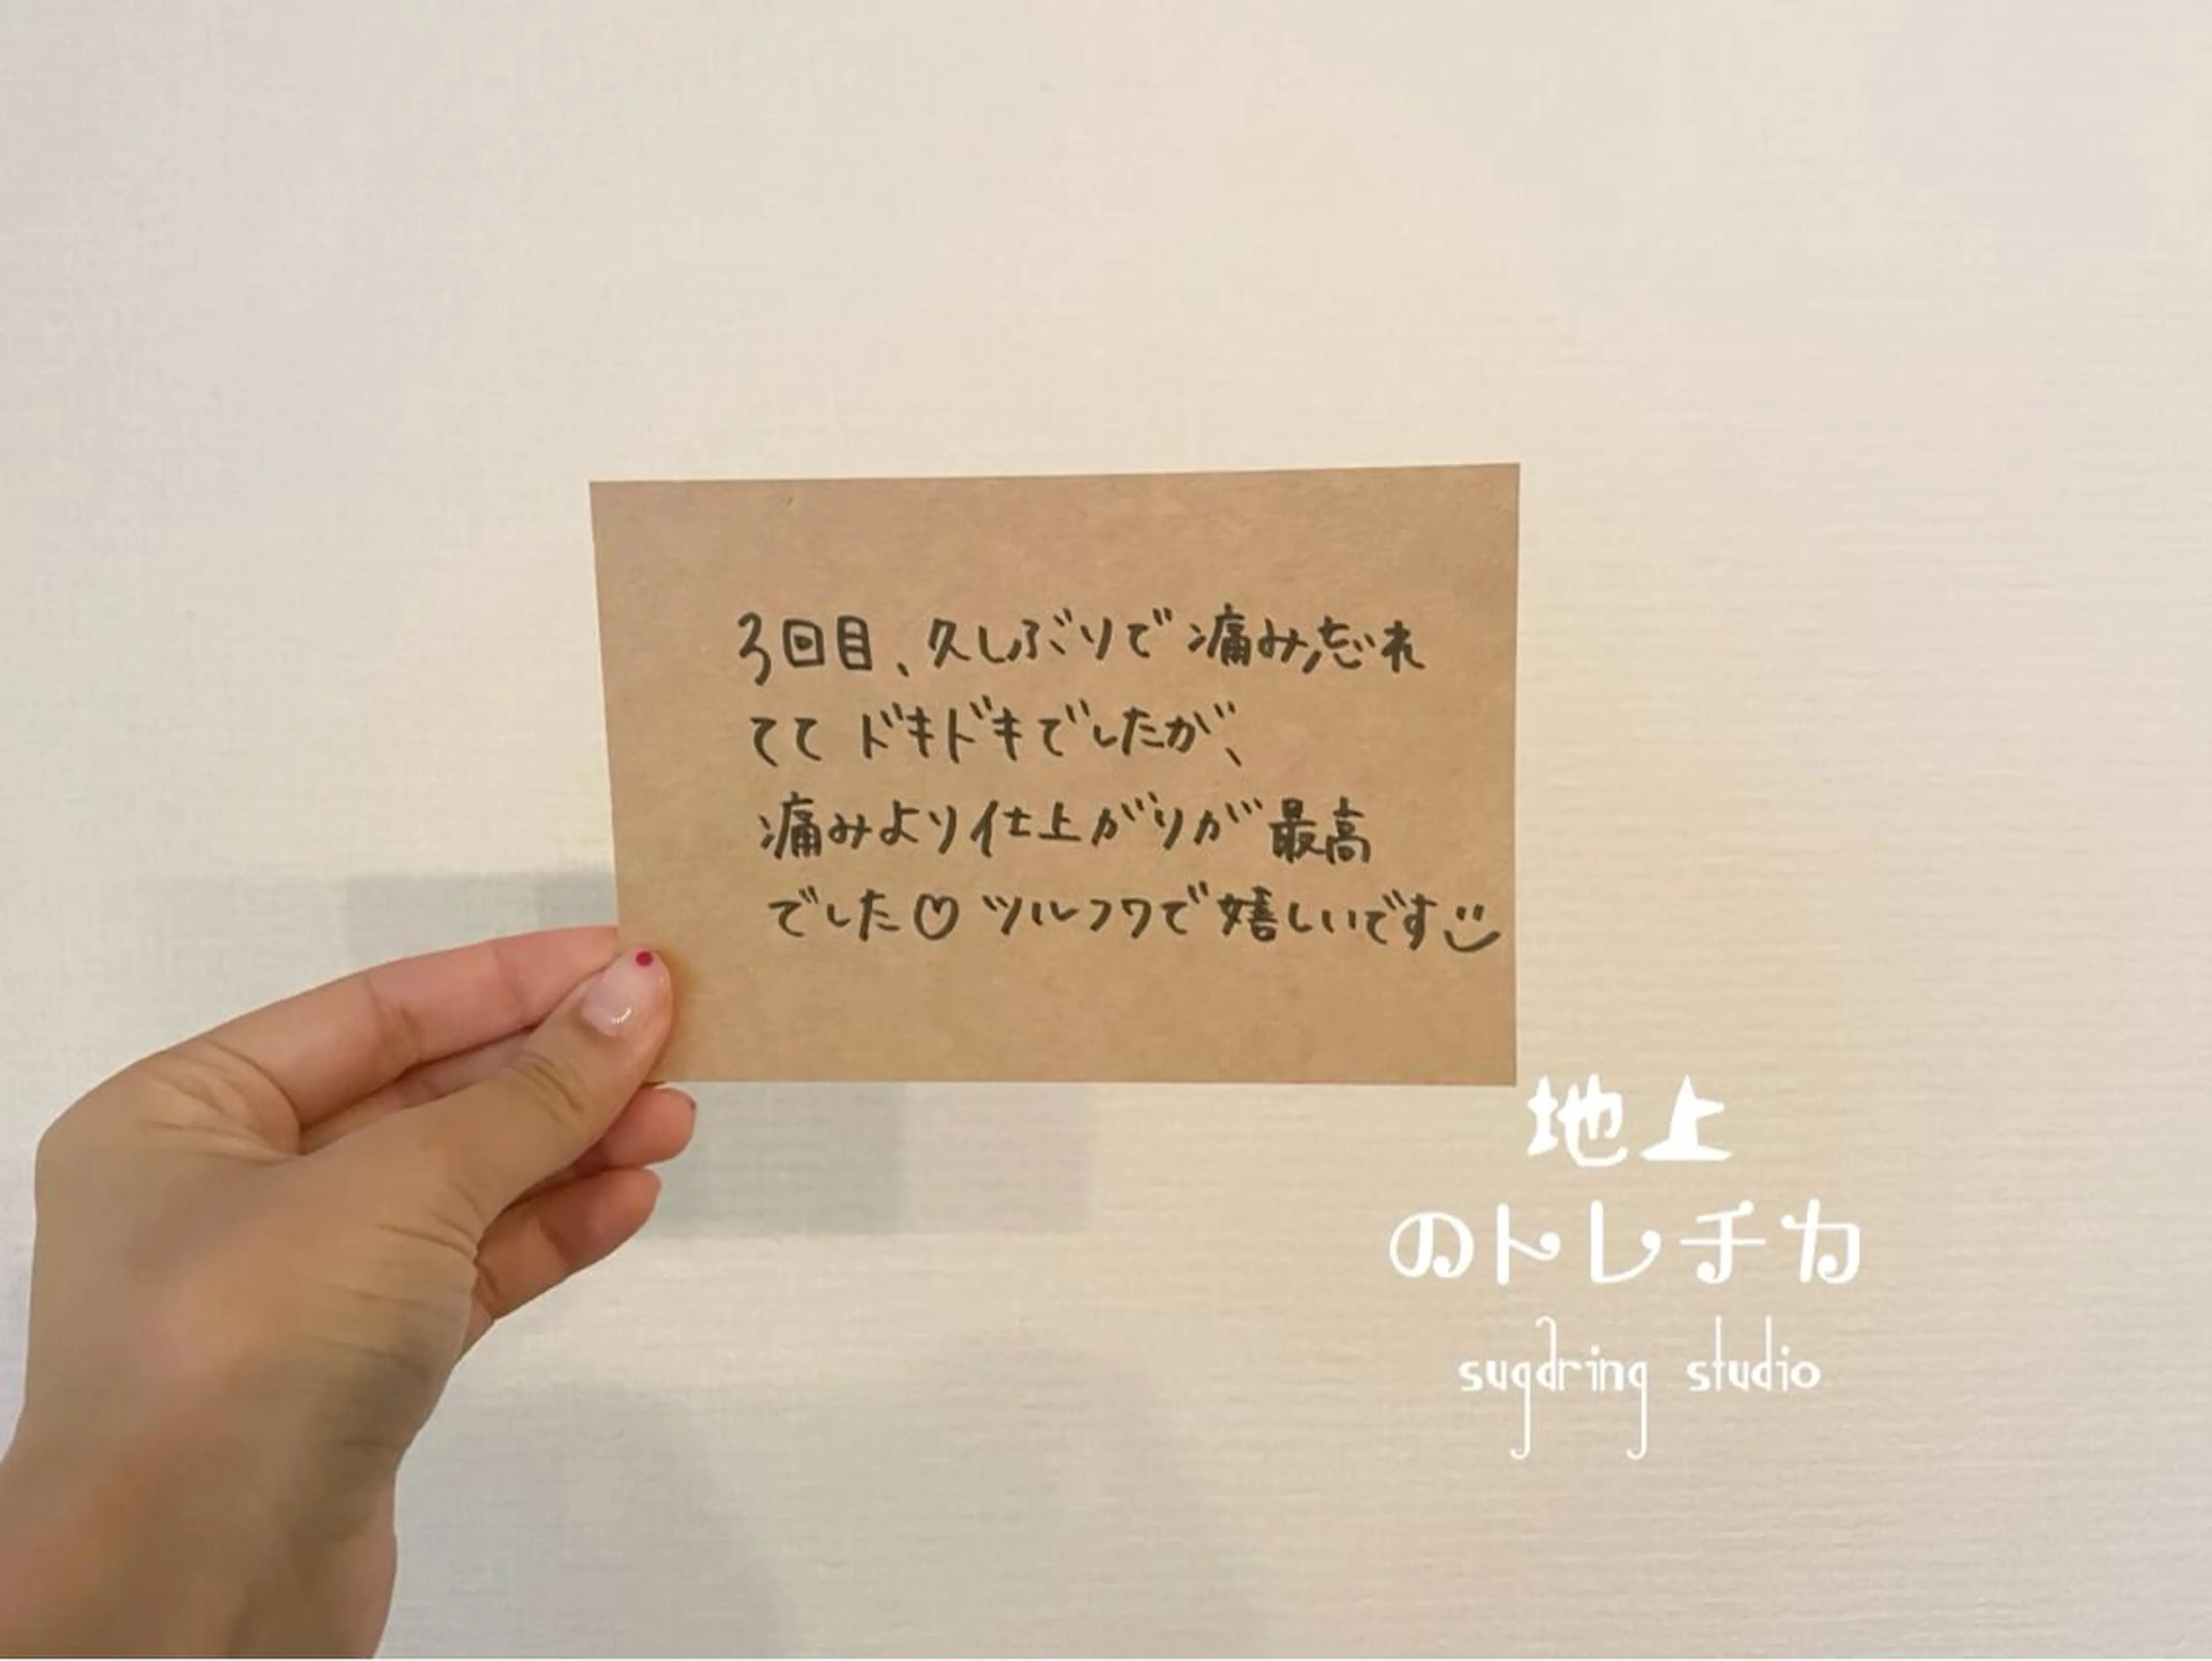 3回目、久しぶりで痛み忘れ
てて ドキドキでしたが、
痛みより仕上がりが最高
でした♡ ツルフワで嬉しいです
地上
のトレチカ
sugaring studio